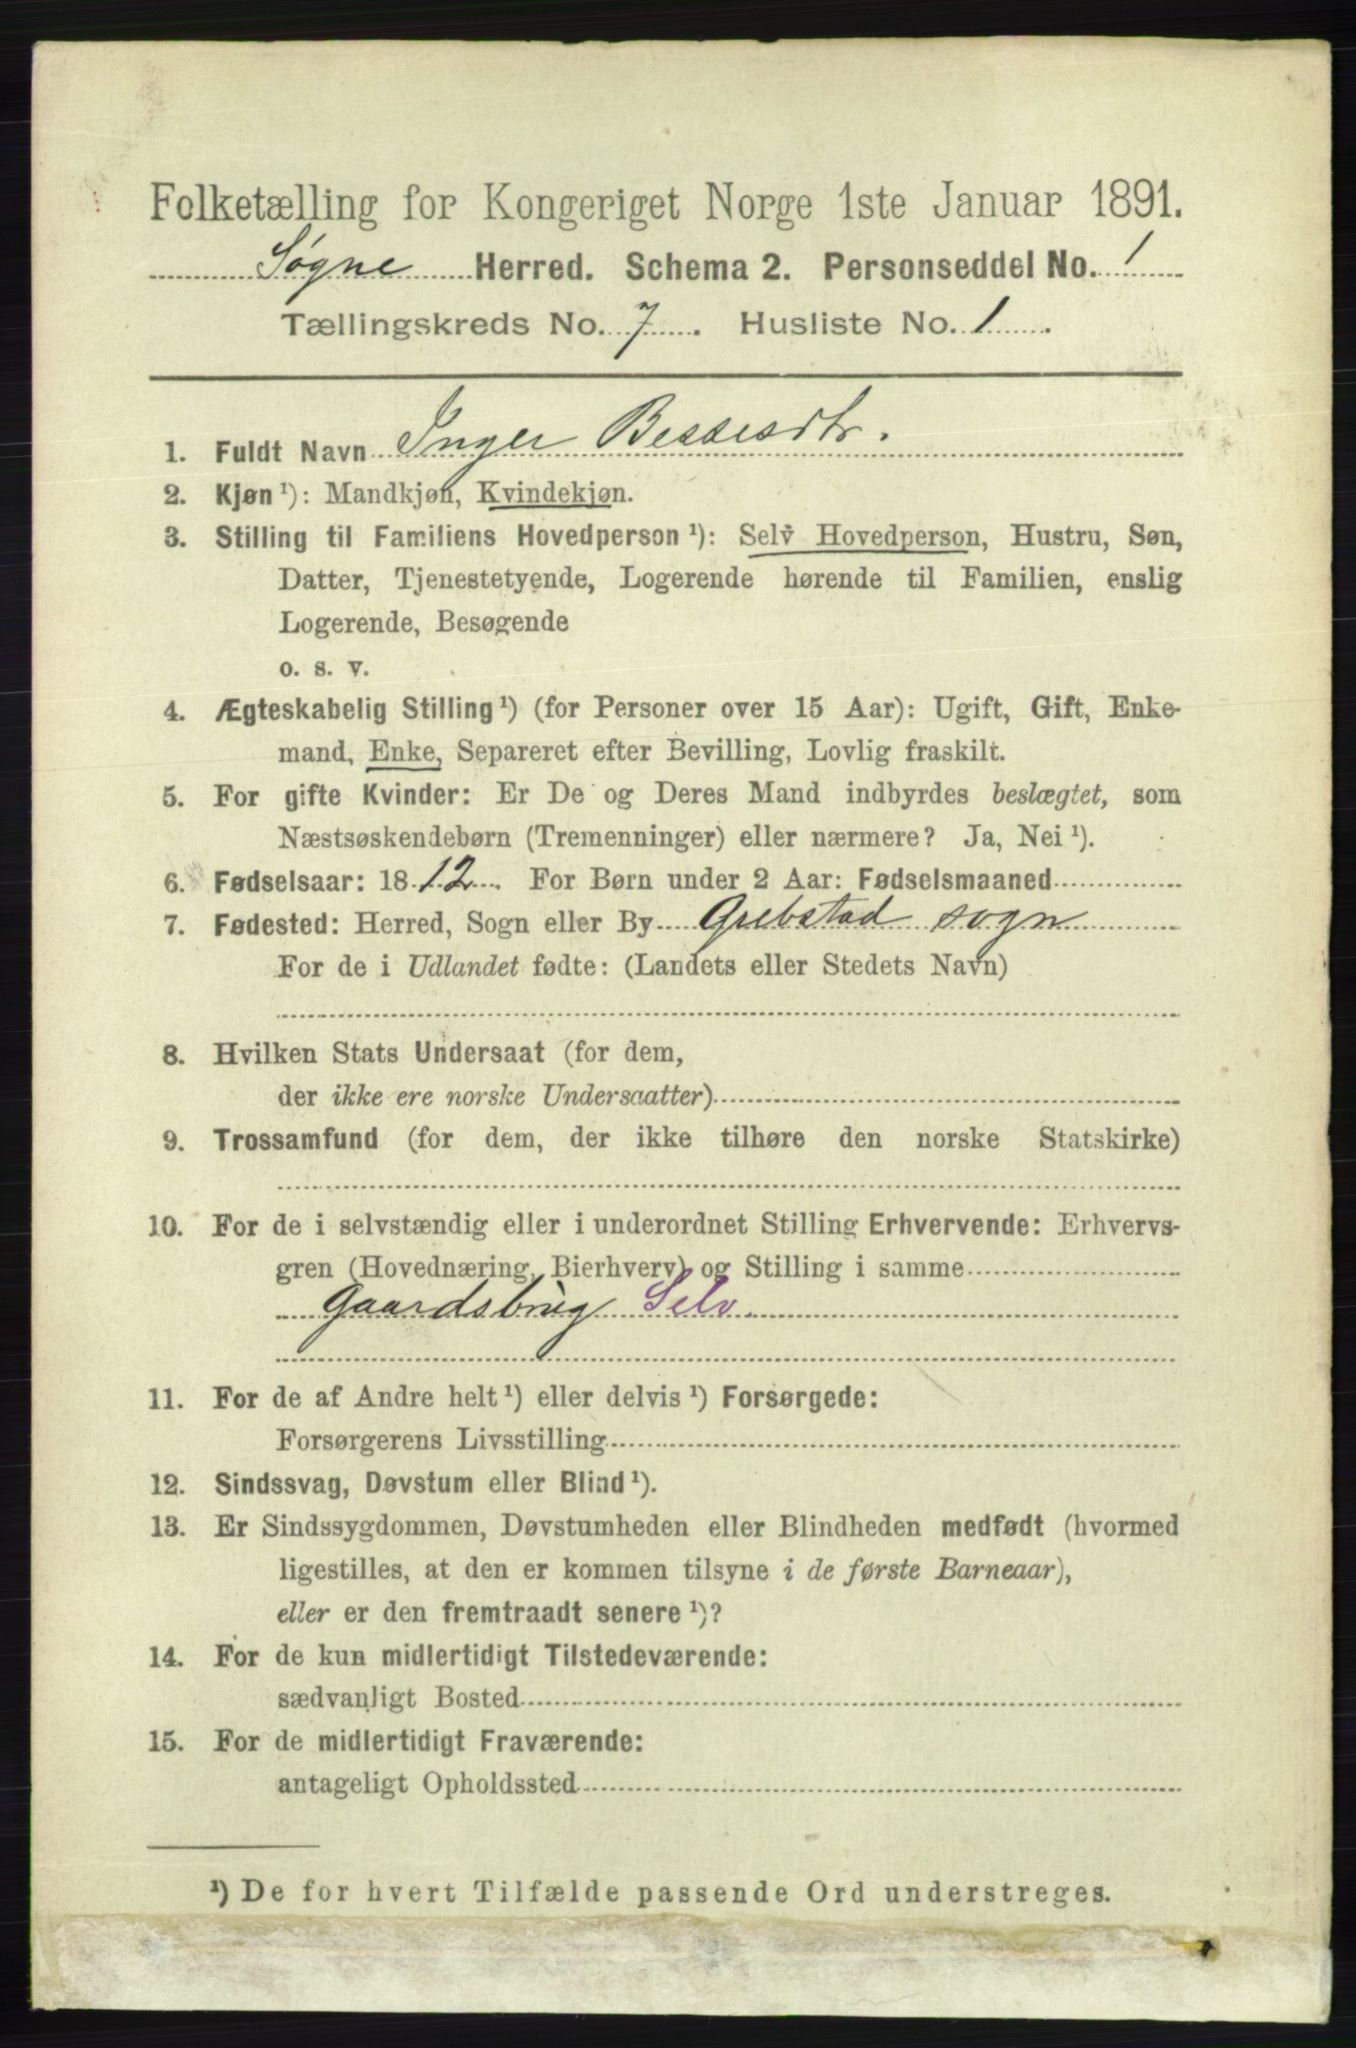 Folketælling for Kongeriget Norge 1ste Januar 1891.
Søgne Herred. Schema 2. Personseddel No. 1
Tællingskreds No. 7. Husliste No. 1.
1. Fuldt Navn Inger Bessesdtr.
2. Kjøn ¹): Mandkjøn, Kvindekjøn.
3. Stilling til Familiens Hovedperson ¹): Selv Hovedperson, Hustru, Søn,
Datter, Tjenestetyende, Logerende hørende til Familien, enslig
Logerende, Besøgende
o. s. v.
4. Ægteskabelig Stilling ¹) (for Personer over 15 Aar): Ugift, Gift, Enke-
mand, Enke, Separeret efter Bevilling, Lovlig fraskilt.
5. For gifte Kvinder: Er De og Deres Mand indbyrdes beslægtet, som
Næstsøskendebørn (Tremenninger) eller nærmere? Ja, Nei ¹).
6. Fødselsaar: 1812. For Børn under 2 Aar: Fødselsmaaned
7. Fødested: Herred, Sogn eller By Grebstad sogn
For de i Udlandet fødte: (Landets eller Stedets Navn)
8. Hvilken Stats Undersaat (for dem,
der ikke ere norske Undersaatter)
9. Trossamfund (for dem, der ikke tilhøre den norske Statskirke)
10. For de i selvstændig eller i underordnet Stilling Erhvervende: Erhvervs-
gren (Hovednæring, Bierhverv) og Stilling i samme
Gaardsbrug Selv.
11. For de af Andre helt ¹) eller delvis ¹) Forsørgede:
Forsørgerens Livsstilling
12. Sindssvag, Døvstum eller Blind ¹).
13. Er Sindssygdommen, Døvstumheden eller Blindheden medfødt (hvormed
ligestilles, at den er kommen tilsyne i de første Barneaar),
eller er den fremtraadt senere ¹)?
14. For de kun midlertidigt Tilstedeværende:
sædvanligt Bosted
15. For de midlertidigt Fraværende:
antageligt Opholdssted
¹) De for hvert Tilfælde passende Ord understreges.